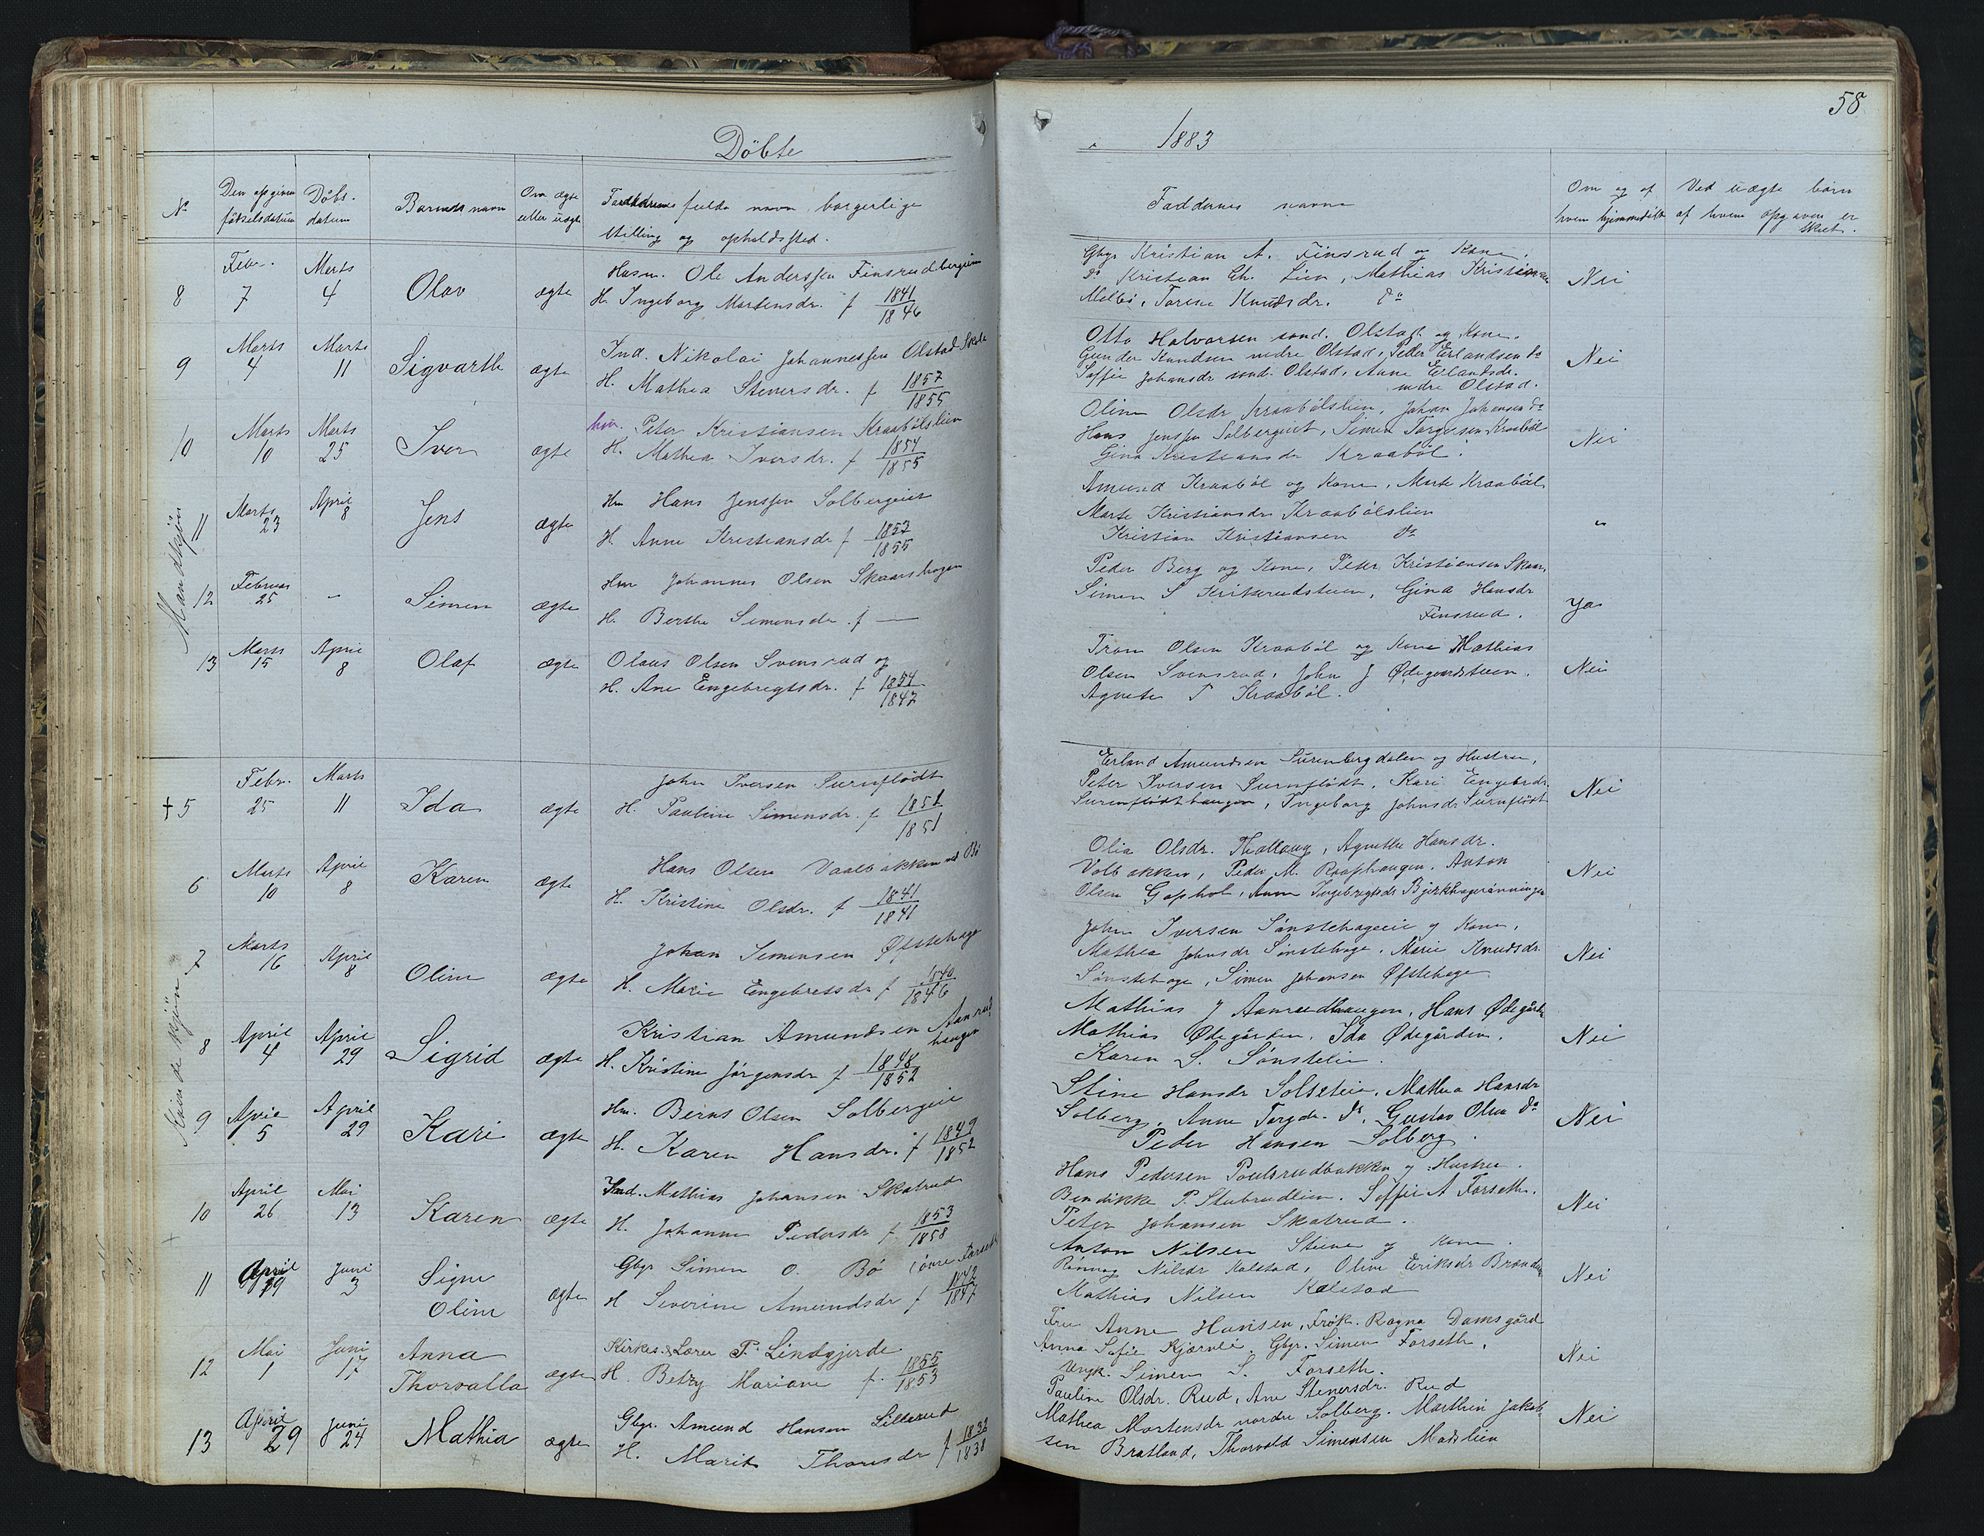 58
Døbte
1883
No
Den opgivne fødselsdatum
Døbs-datum
Barnets navn
Om ægte eller uægte
Forældrenes fulde navn borgerlige stilling og opholdssted.
Faddernes navne
Om og af hvem hjemmedøbt
Ved uægte børn af hvem opgaven er skeet.
Mandkjøn
8 Febr. 7 Marts 4 Olav ægte Husm. Ole Anderssen Finsrudbergeien
H. Ingeborg Mortensdr. f 1841/1846
Gbgr Kristian A. Finsrud og Kone,
Do Kristian Ch. Lien, Mathias Kristiansen
Melbö, Torine Knudsdr. Do
Nei
9 Marts 4 Marts 11 Sigvarth ægte Ind. Nikolai Johannessen Olstad Skole
H. Mathea Stenersdr. f 1857/1855
Otto Halvorsen sønd. Olstad og Kone.
Gunder Knudsen nedre Olstad, Peder Erlandsen do
Soffie Johansdr sønd. Olstad, Anne Erlandsdr.
nedre Olstad.
Nei
10 Marts 10 Marts 25 Iver ægte hm. Peter Kristiansen Kraabölslien
H. Mathea Iversdr. f 1854/1855
Oline Olsdr Kraabölslien, Johan Johansen do
Hans Jenssen Solbergeiet, Simen Torgersen Kraaböl
Gina Kristiansdr Kraaböl.
Nei
11 Marts 23 April 8 Jens ægte Hm Hans Jenssen Solbergeiet
H. Anne Kristiansdr f 1852/1855
Amund Kraaböl og Kone, Marte Kraaböl
Marte Kristiansdr Kraabölslien
Kristian Kristiansen do
"
12 Februar 25 - Simen ægte Hm Johannes Olsen Skaarshagen
H. Berthe Simensdr f —
Peder Berg og Kone, Peter Kristiansen Skaar,
Simen S Kritsrudstuen, Gina Hansdr
Finsrud.
Ja
13 Marts 15 April 8 Olaf ægte Olaus Olsen Svensrud og
H. Ane Engebregtsdr. f 1854/1847
Tron Olsen Kraaböl og Kone Mathias
Olsen Svensrud, John J Ødegaardstuen.
Agnete T Kraaböl.
Nei
Kvindekjøn
+ 5 Febr. 25 Marts 11 Ida ægte John Iversen Surnflödt
H. Pauline Simensdr. f 1851/1851
Erland Amundsen Surenbergdalen og Hustru,
Peter Iversen Surnflödt, Kari Engebrdr
Surenflödthaugen, Ingeborg Johnsdr Surnflödt
Nei
6 Marts 10 April 8 Karen ægte Hans Olsen Vaalbakken ved Bø
H. Kristine Olsdr. f 1841/1841
Olia Olsdr. Thallaug, Agnethe Hansdr.
Volbakken, Peder M. Roophaugen. Anton
Olsen Gaphol, Anne Ingebregtsdr Bjerkhagerönningen
Nei
7 Marts 16 April 8 Oline ægte Johan Simensen Øfstehage
H. Marie Engebretsdr f 1840/1846
John Iversen Sønstehageie og Kone,
Mathea Johnsdr Sønstehage, Marie Knudsdr
Sønstehage, Simen Johansen Øfstehage
Nei
8 April 4 April 29 Sigrid ægte Kristian Amundsen Aanrud-
haugen
H. Kristine Jørgensdr f 1848/1852
Mathias J Aanrudhaugen, Hans Ødegård
Mathias Ødegården, Ida Ødegården,
Karen S. Sønstelie.
Nei
9 April 5 April 29 Kari ægte Hm. Bernt Olsen Solbergeie
H. Karen Hansdr. f 1849/1852
Stine Hansdr Solseteie, Mathea Hansdr
Solberg, Anne Torgdr. do, Gustav Olsen do
Peder Hansen Solberg.
Nei
10 April 26 Mai 13 Karen ægte Ind. Mathias Johansen Skatrud
H. Johanne Pedersdr f 1853/1858
Hans Pedersen Poulsrudbakken og Hustru.
Bendikke P. Stubrudlien. Soffie A Forseth.
Peter Johansen Skatrud.
Nei
11 April 29 Juni 3 Signe Oline ægte Gbgr Simen O. Bø (øvre Forseth
H Severine Amundsdr f 1842/1847
Anton Nilsen Stene og Kone.
Rönnog Nilsdr Kalstad, Oline Eriksdr Brænden
Mathias Nilsen Kalstad
Nei
12 Mai 1 Juni 17 Anna Thorvalla ægte Kirkes. & Lærer P. Lindgjerde
H. Betzy Mariane f. 1855/1853
Fru Anne Hansen, Frøk. Ragna Damsgård
Anna Sofie Kjørnli, Gbgr. Simen Forseth,
Ungk. Simen S. Forseth.
Nei
13 April 29 Juni 24 Mathia ægte Gbgr. Amund Hansen Lillerud
H. Marit Thoresdr f 1832/1838
Pauline Olsdr. Rud, Ane Stenersdr. Rud
Mathea Mortensdr nordre Solberg. Marthin Jakob-
sen Bratland, Thorvald Simensen Madslien
Nei